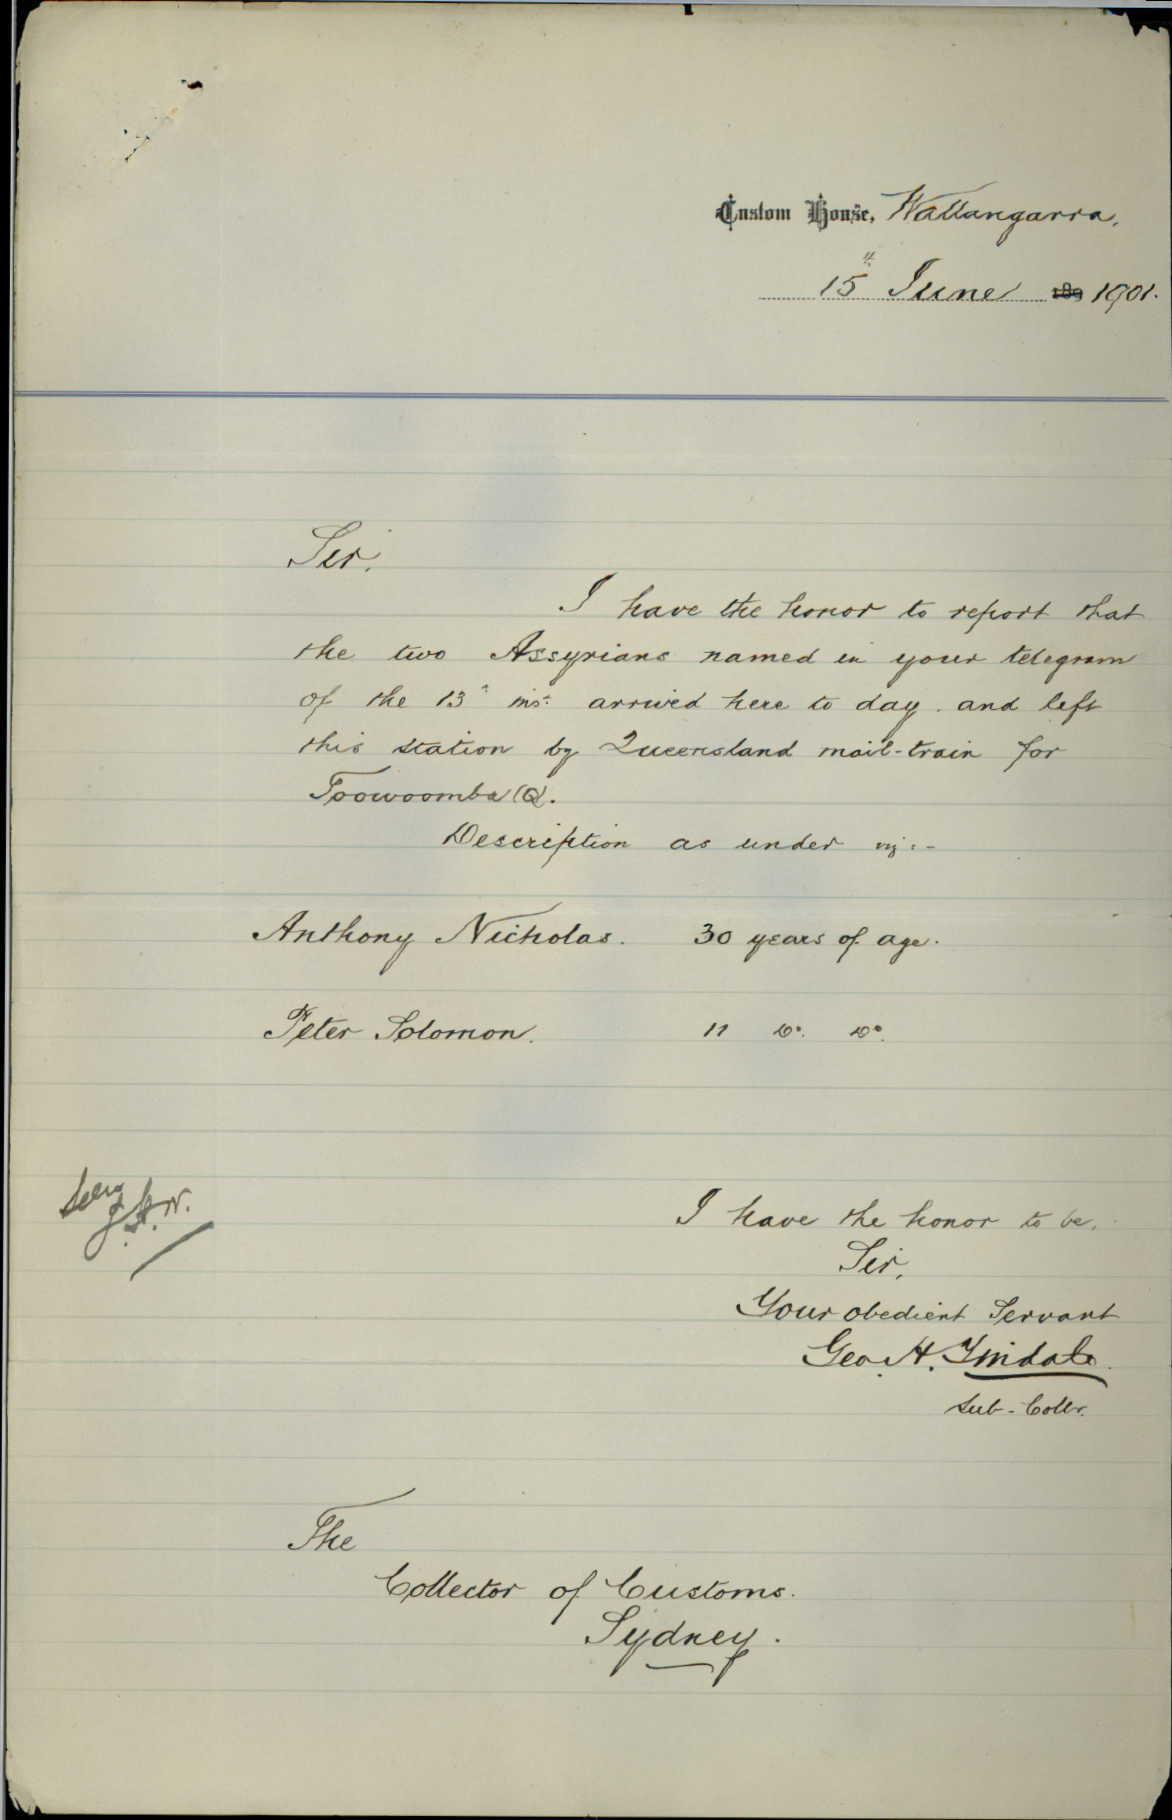 Custom House, Wallangarra,
15th June 189 1901.
Sir,
I have the honor to report that
the two Assyrians named in your telegram
of the 13th inst. arrived here to day. and left
this station by Queensland mail-train for
Toowoomba (Q).
Description as under viz:-
Anthony Nicholas. 30 years of age.
Peter Solomon. 11 Do. Do.
Seen
I have the honor to be,
Sir,
Your obedient Servant
Geo. H. Tindale
Sub-Collr.
The
Collector of Customs.
Sydney.